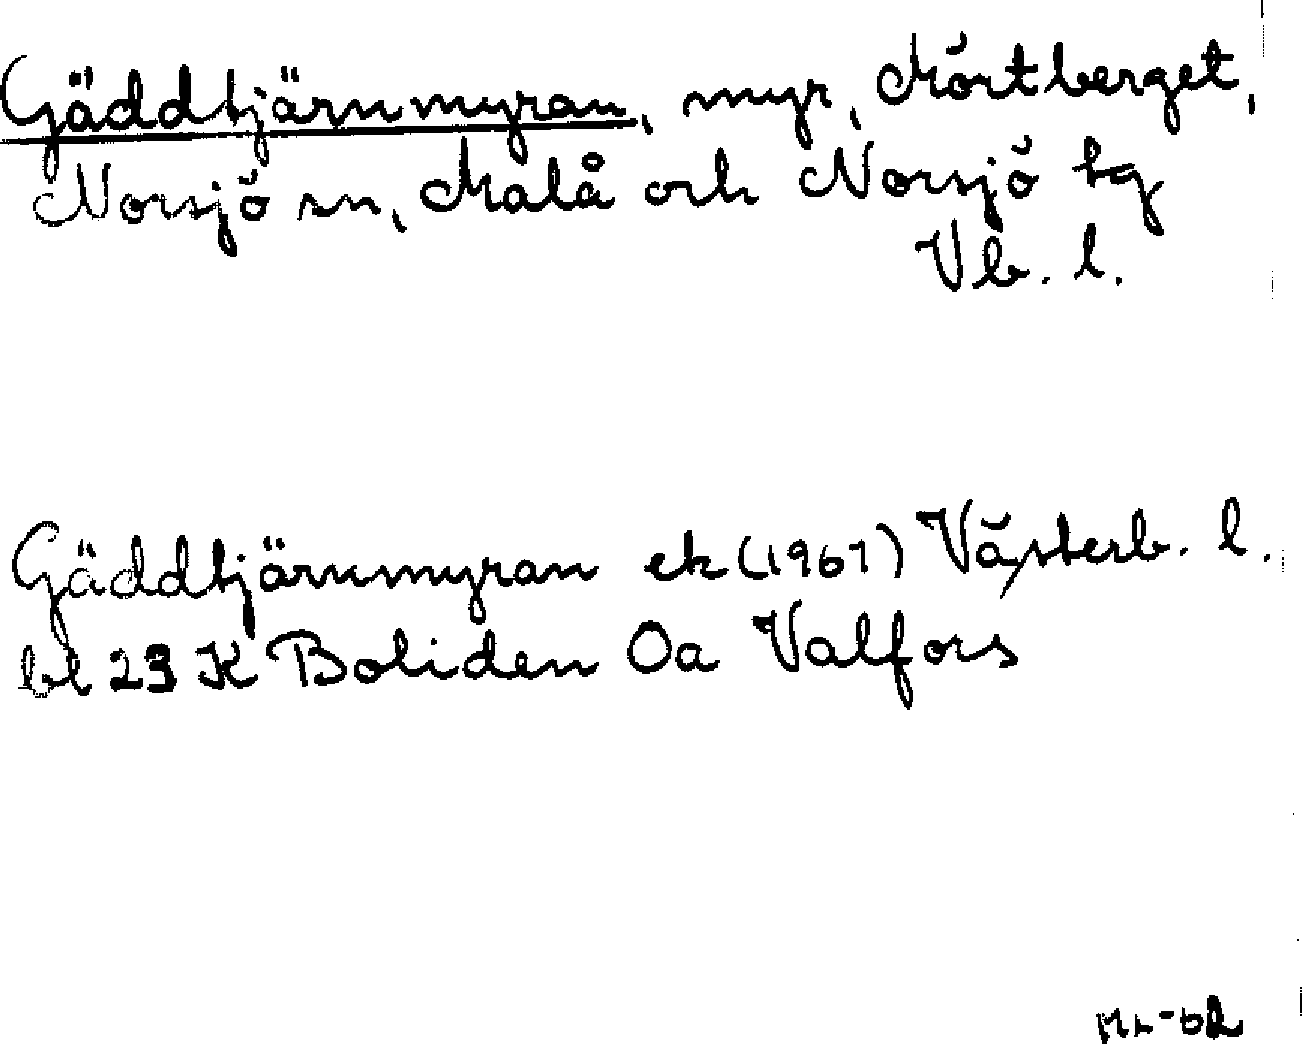 Gäddtjärnmyran, myr, Mörtberget,
Norsjö sn, Malå och Norsjö tg
Vb. l.
Gäddtjärnmyran ek (1967) Västerb. l.
bl 23 K Boliden Oa Valfors